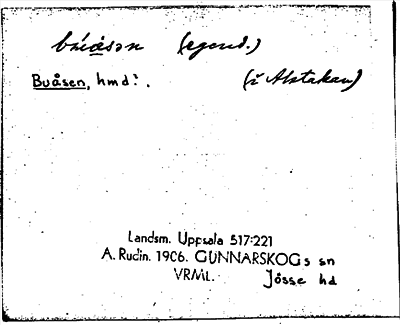 búåsən (egend.)
Buåsen, hmd?. (i Alstakan)
Landsm. Uppsala 517:221
A. Rudin. 1906. GUNNARSKOGs sn
VRML. Jösse hd